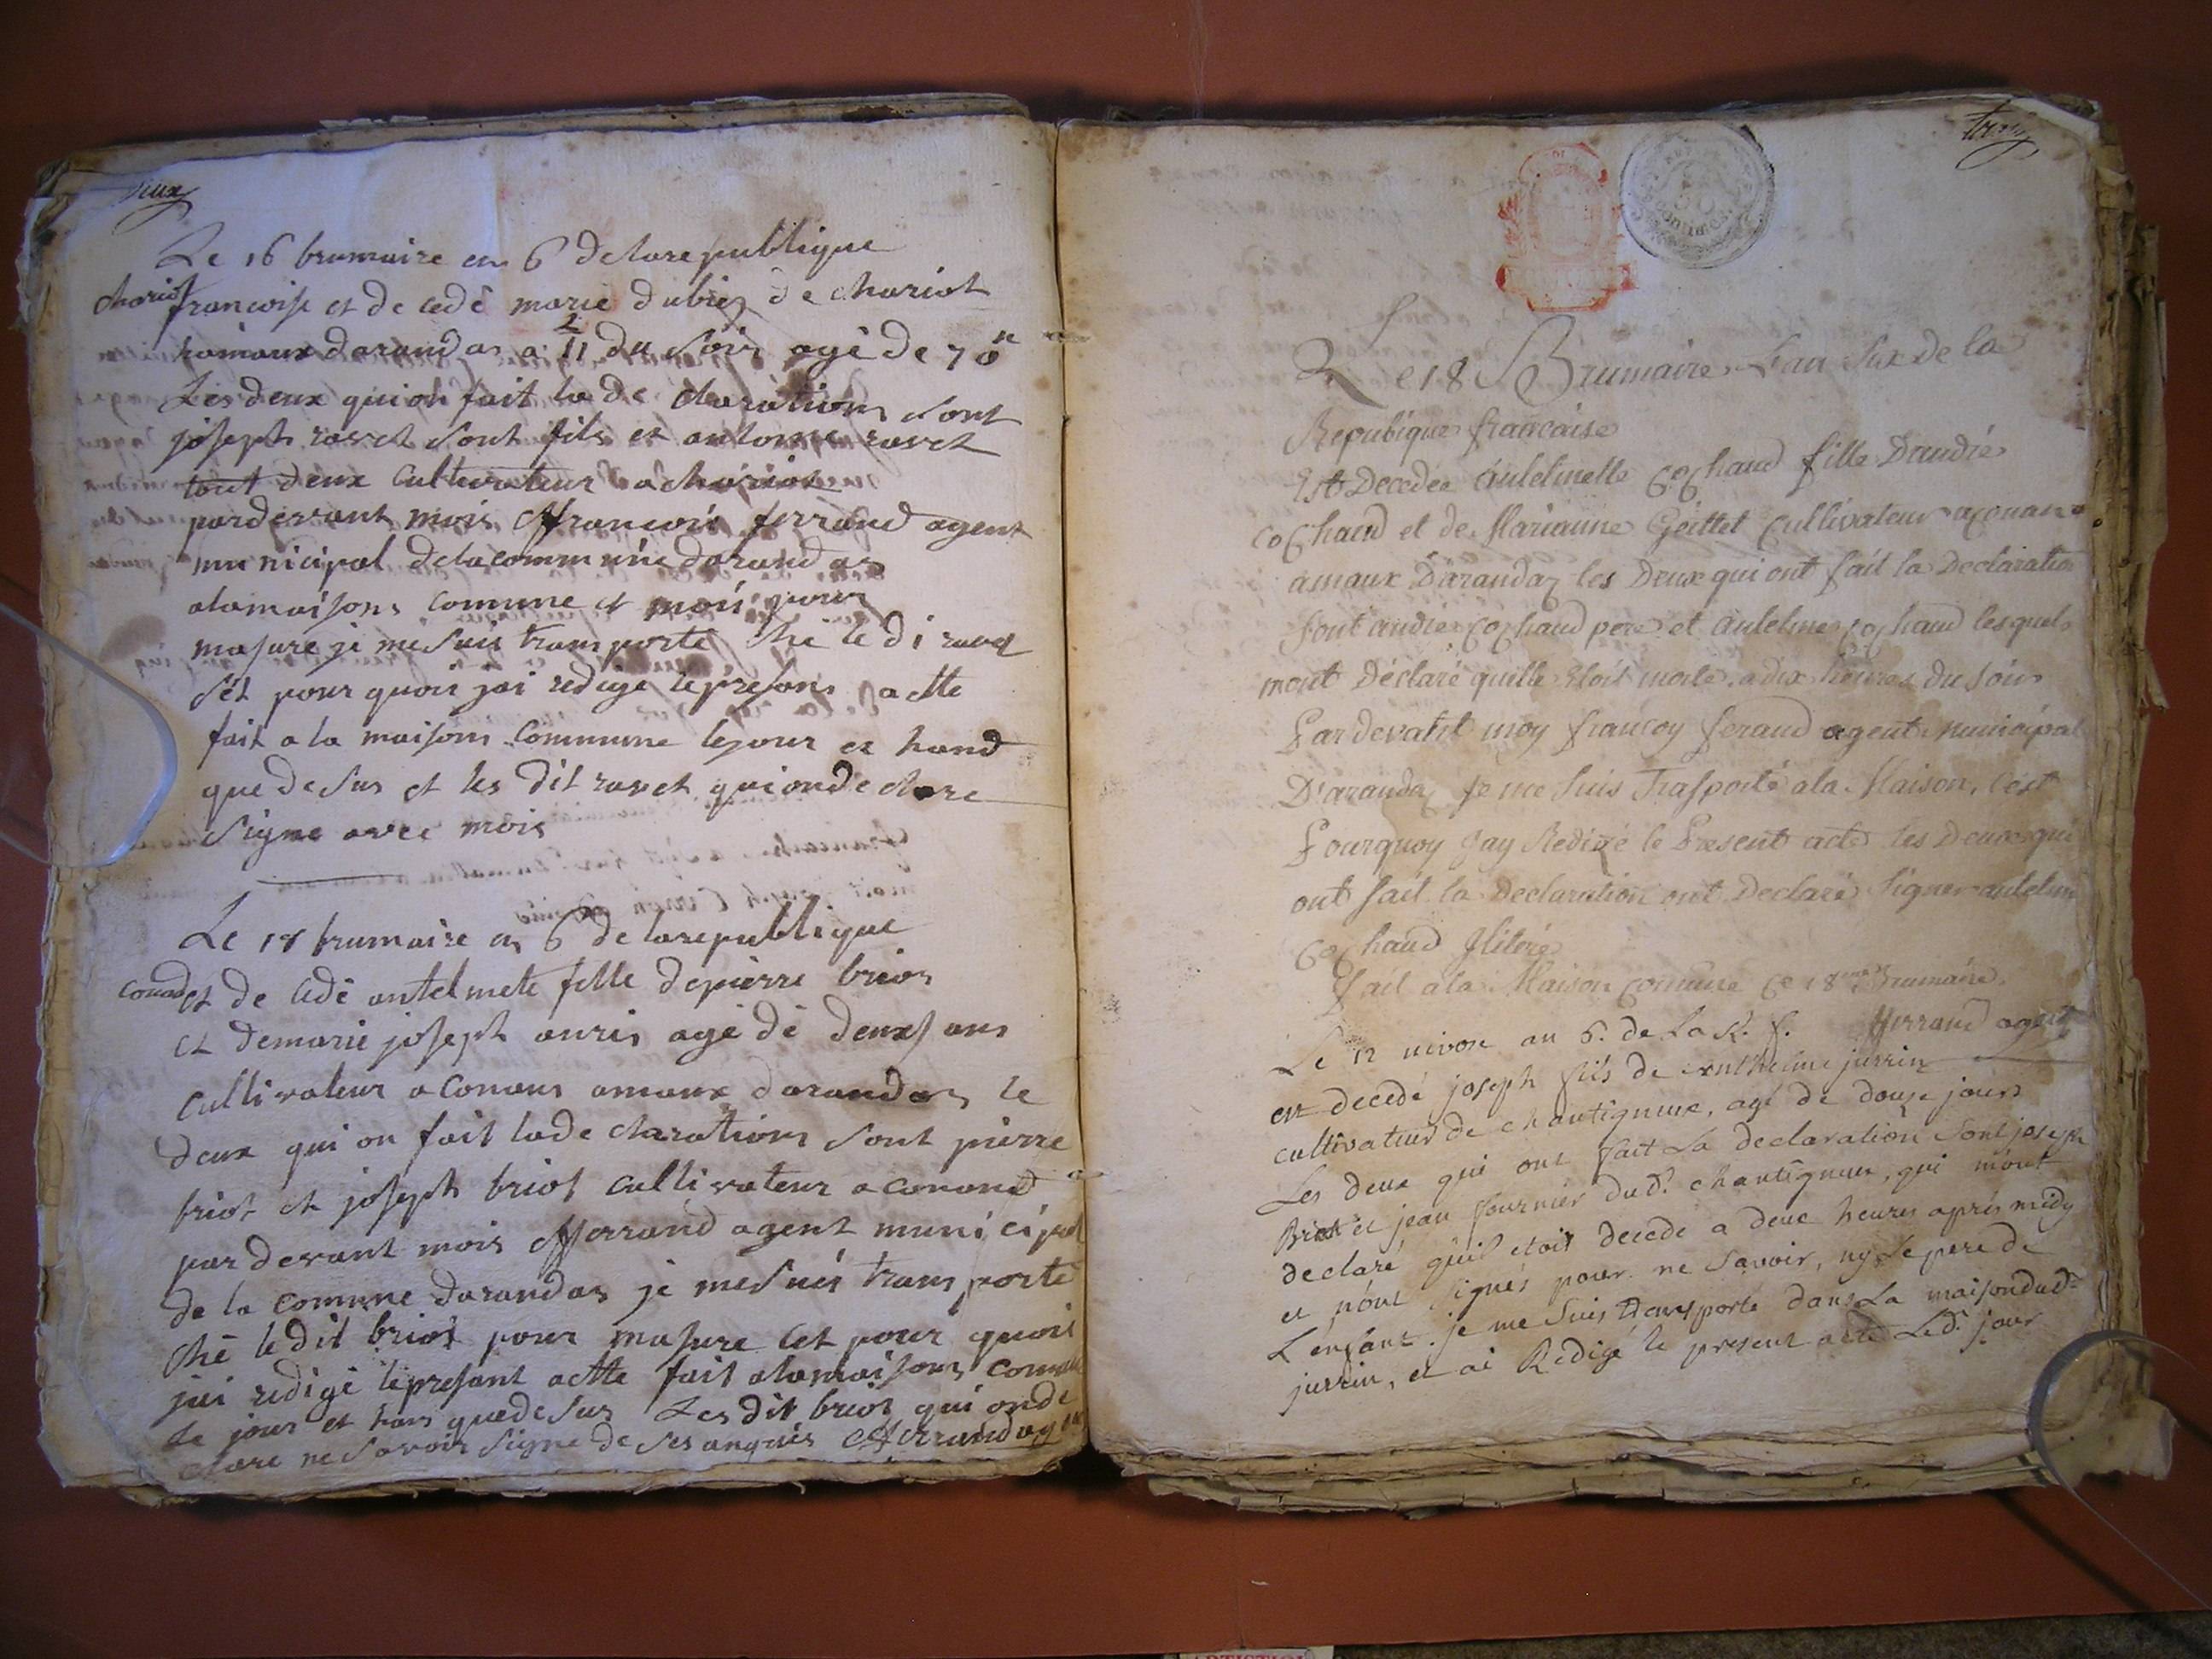 deux
Le 16 brumaire en 6 de larepublique
chariot
francoise et de cedè marie dubies de chariot
hamaux darandas a 11 du soir agè de 70
Les deux qui on fait la de claration sont
joseph ravet sont fils et antoine ravet
tout deux cultivateur a chariot
pardevant mois francois ferrand agent
municipal delacommune darandas
alamaison comune et moi pour
masure je me suis transporte chè le di ravet
sèt pour quois jai redige lepresant actte
fait a la maison commune lejour et hand
que de sus et les dit ravet qui onde clare
signe avec mois
Le 18 brumaire en 6 de larepublique
conand
et de cedè antelmete fille depierre briot
et demarie joseph anris agè dè deux ans
cultivateur a conans amaux darandas le
deux qui on fait lade claration sont pierre
briot et joseph briot cultivateur a conand
par devant mois fferrand agent municipal
de la comune darandas je me suis transportè
chè ledit briot pour masure cet pour quois
jai redigè lepresant actte fait alamaison comune
le jour et hans quedesus Les dit briot qui onde
clare ne savoir signe de ses anquis fferrand agent
trois
50 centimes
Le 18 Brumaire Lan Six de la
Repubique francaise
Est Decedée Antelmette Cochand fille Dandré
Cochand et de Marianne Geittet Cultivateur a conan
amaux Darandaz les Deux qui ont fait la Declaration
sont andré Cochand pere et antelme Cochand lesquels
mont Déclaré quelle Etoit morte a dix heures du soir
Pardevant moy francoy ferand agent Municipal
D'arandaz Je me suis Trasporté ala Maison, cest
Pourquoy Jay Redigé le Present acte les Deux qui
ont fait la Declaration ont Declaré signer antelme
Cochand Jlitéré
fait ala Maison comune Ce 18eme Brumaire
fferrand agent
Le 12 nivose an 6. de La R. f.
est decedé joseph fils de enthelme jurrin
cultivateur de chantigneux, agé de douze jours
Les deux qui ont fait La declaration sont joseph
Briot et jean fournier dud. chantigneux, qui m'ont
declaré qu'il etoit decede a deux heures aprés midy
et n'ont signés pour ne savoir, ny Le pere de
L'enfant. je me suis transporté dans La maison dud.
jurrin, et ai Redigé le present acte Led. jour